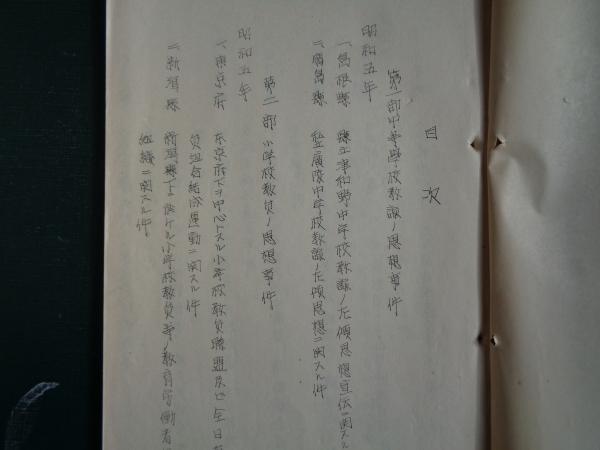 目次
第一部中等學校教諭ノ思想事件
昭和五年
一、島根縣 縣立津和野中学校教諭ノ左傾思想宣伝ニ関スル
二、廣島縣 私立廣陵中学校教諭ノ左傾思想ニ関スル件
第二部小学校教員ノ思想事件
昭和五年
一、東京府 東京府下ヲ中心トスル小学校教員聯盟及ビ全日
員組合結成運動ニ関スル件
二、新潟縣 新潟縣下ニ於ケル小学校教員等ノ教育労働者
組織ニ関スル件